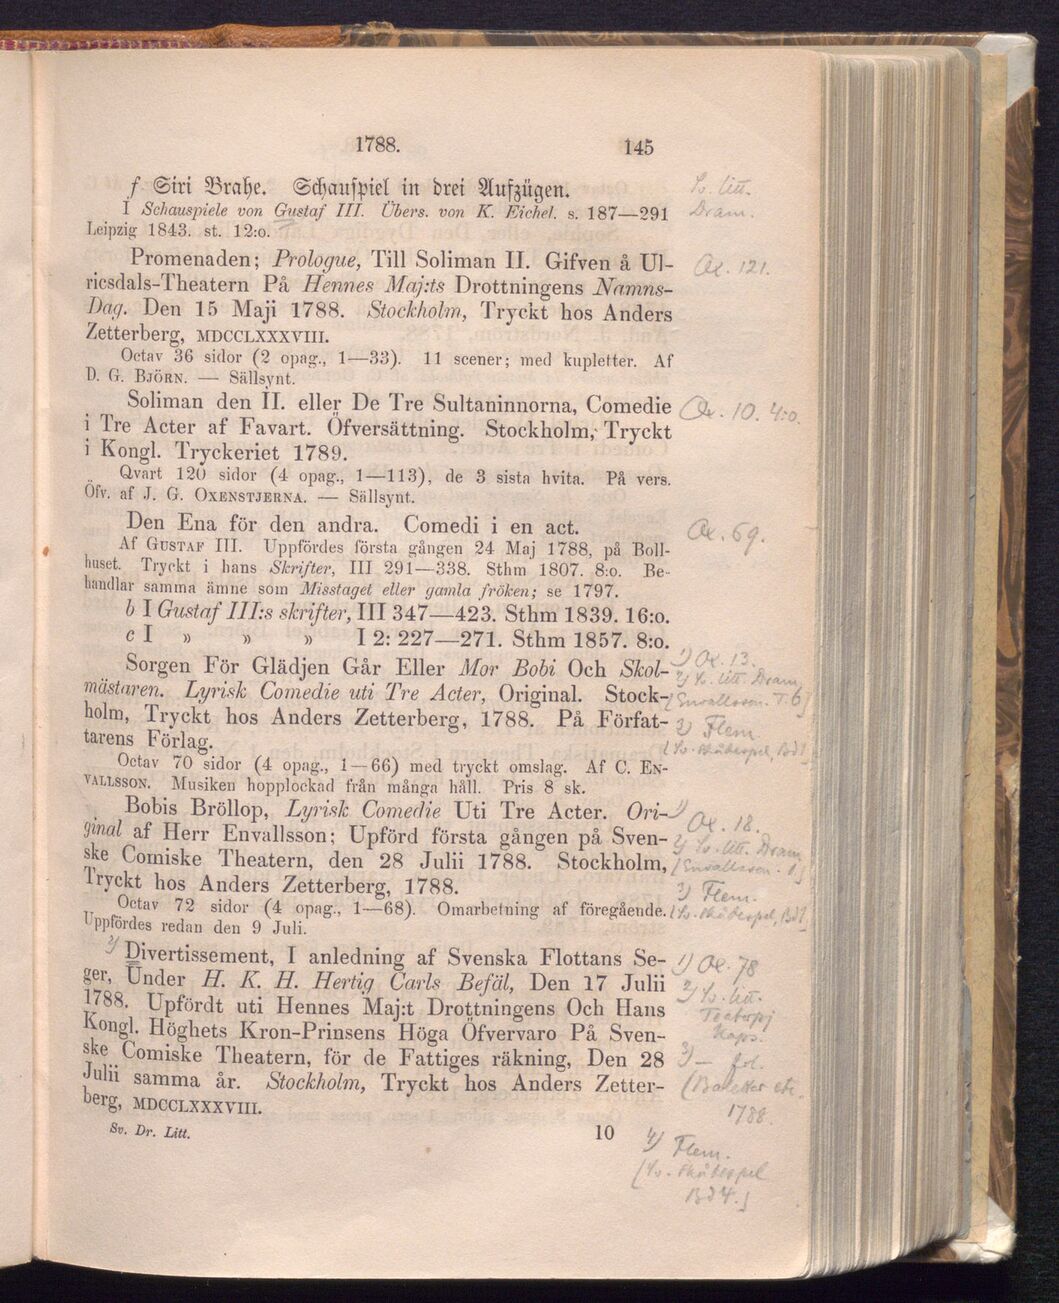 1788. 145
f Siri Brahe. Schauspiel in drei Aufzügen.
Sv. litt.
Dram.
I Schauspiele von Gustaf III. Übers. von K. Eichel. s. 187—291
Leipzig 1843. st. 12:o.
Promenaden; Prologue, Till Soliman II. Gifven å Ul-
Ox. 121.
ricsdals-Theatern På Hennes Maj:ts Drottningens Namns-
Dag. Den 15 Maji 1788. Stockholm, Tryckt hos Anders
Zetterberg, MDCCLXXXVIII.
Octav 36 sidor (2 opag., 1—33). 11 scener; med kupletter. Af
D. G. BJÖRN. — Sällsynt.
Soliman den II. eller De Tre Sultaninnorna, Comedie
Ox. 10. 4:o.
i Tre Acter af Favart. Öfversättning. Stockholm, Tryckt
i Kongl. Tryckeriet 1789.
Qvart 120 sidor (4 opag., 1—113), de 3 sista hvita. På vers.
Öfv. af J. G. OXENSTJERNA. — Sällsynt.
Den Ena för den andra. Comedi i en act.
Ox. 69.
Af GUSTAF III. Uppfördes första gången 24 Maj 1788, på Boll-
huset. Tryckt i hans Skrifter, III 291—338. Sthm 1807. 8:o. Be-
handlar samma ämne som Misstaget eller gamla fröken; se 1797.
b I Gustaf III:s skrifter, III 347—423. Sthm 1839. 16:o.
c I » » » I 2: 227—271. Sthm 1857. 8:o.
Sorgen För Glädjen Går Eller Mor Bobi Och Skol-
1) Ox. 13.
2) Sv. litt. Dram.
mästaren. Lyrisk Comedie uti Tre Acter, Original. Stock-
[Envallsson. T. 6]
holm, Tryckt hos Anders Zetterberg, 1788. På Förfat-
3) Flem.
tarens Förlag.
[Sv. skådespel, Bd 1]
Octav 70 sidor (4 opag., 1—66) med tryckt omslag. Af C. EN-
VALLSSON. Musiken hopplockad från många håll. Pris 8 sk.
Bobis Bröllop, Lyrisk Comedie Uti Tre Acter. Ori-
1) Ox. 18.
ginal af Herr Envallsson; Upförd första gången på Sven-
2) Sv. litt. Dram
ske Comiske Theatern, den 28 Julii 1788. Stockholm,
[Envallsson. 1]
Tryckt hos Anders Zetterberg, 1788.
3) Flem.
Octav 72 sidor (4 opag., 1—68). Omarbetning af föregående.
[Sv. skådespel, Bd 1]
Uppfördes redan den 9 Juli.
2) Divertissement, I anledning af Svenska Flottans Se-
1) Ox. 78
ger, Under H. K. H. Hertig Carls Befäl, Den 17 Julii
2) Sv. litt.
1788. Upfördt uti Hennes Maj:t Drottningens Och Hans
Kongl. Höghets Kron-Prinsens Höga Öfvervaro På Sven-
Kaps.
ske Comiske Theatern, för de Fattiges räkning, Den 28
3) — fol.
Julii samma år. Stockholm, Tryckt hos Anders Zetter-
(Baletter etc.
berg, MDCCLXXXVIII.
1788.
Sv. Dr. Litt. 10
4) Flem.
[Sv. skådespel
Bd 4.]